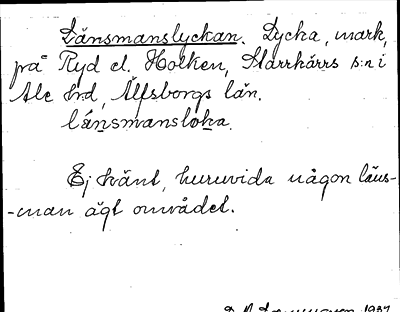 Länsmanslyckan. Lycka, mark,
på Ryd el. Holken, Starrkärrs s:n i
Ale hrd, Älfsborgs län.
lánsmansloka.
Ej känt, huruvida någon läns-
-man ägt området.
1937